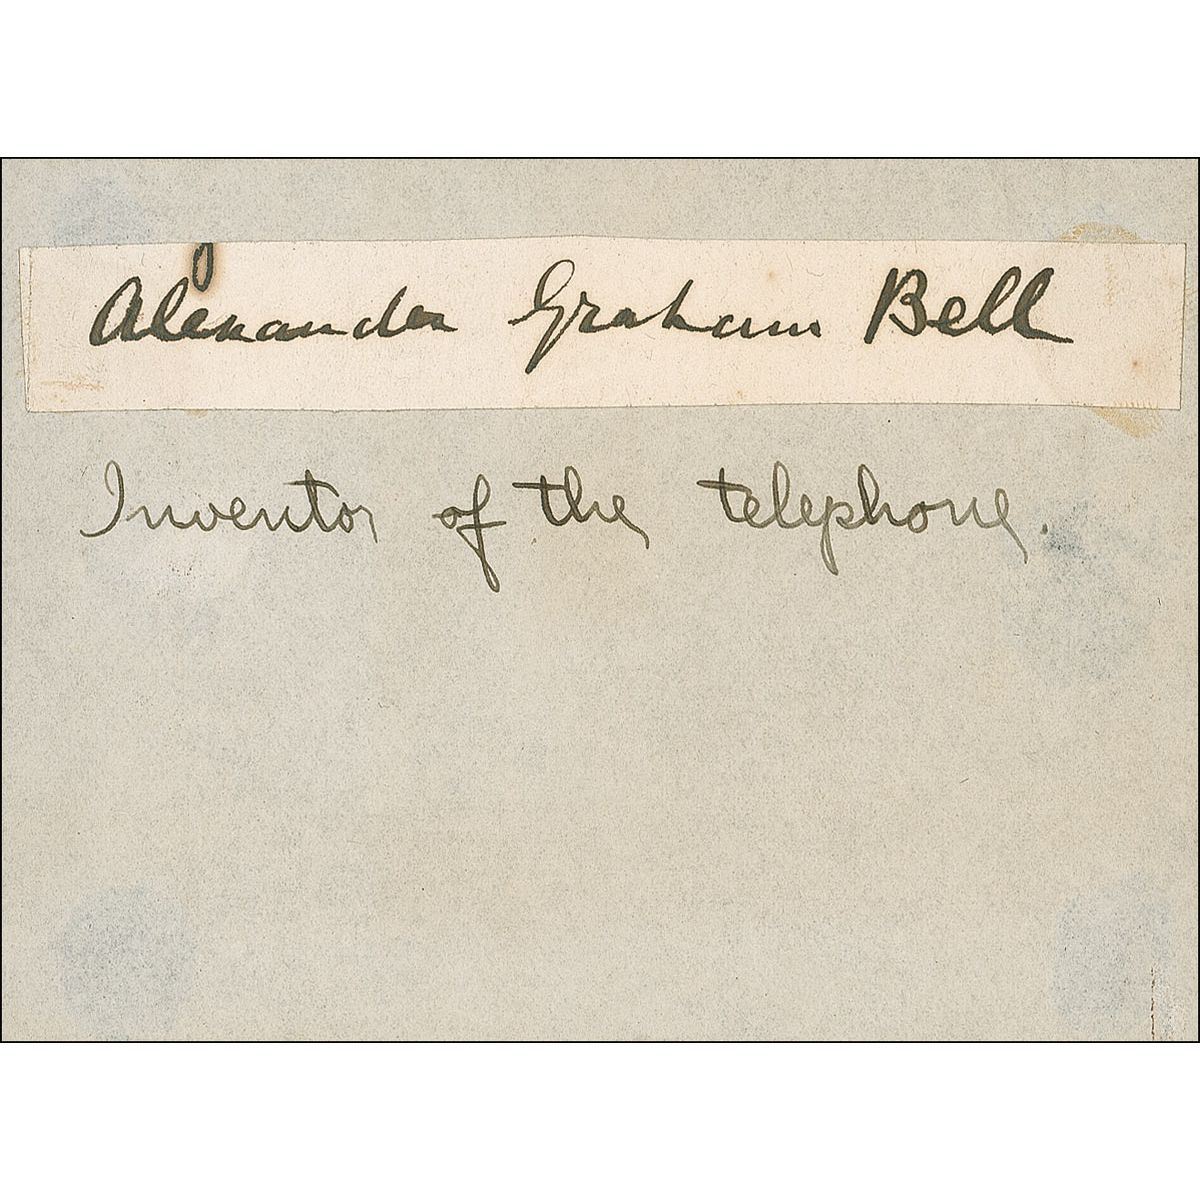 Alexander Graham Bell
Inventor of the telephone.